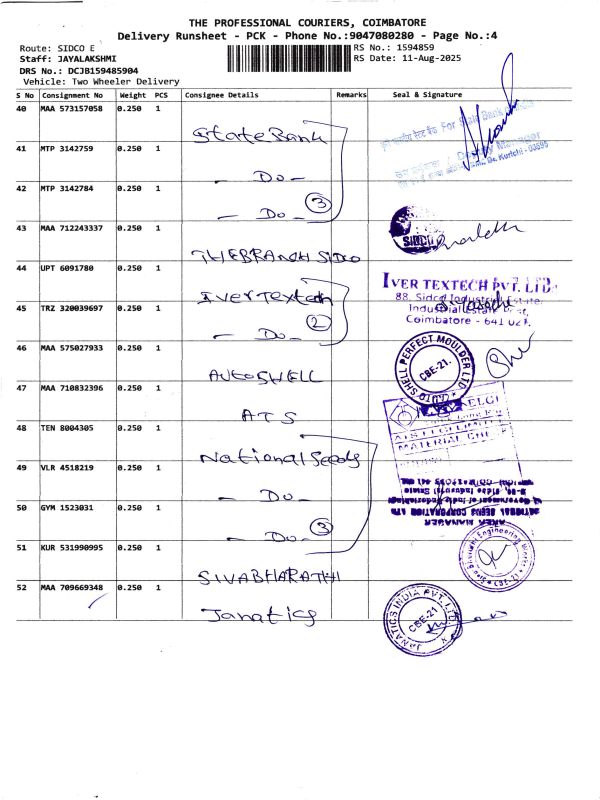 THE PROFESSIONAL COURIERS, COIMBATORE
Delivery Runsheet - PCK - Phone No.:9047080280 - Page No.:4
Route: SIDCO E
RS No.: 1594859
Staff: JAYALAKSHMI
RS Date: 11-Aug-2025
DRS No.: DCJB159485904
Vehicle: Two Wheeler Delivery
S No Consignment No Weight PCS Consignee Details Remarks Seal & Signature
40 MAA 573157058 0.250 1
State Bank
For State Bank
41 MTP 3142759 0.250 1
- Do -
Manager
Kurichi
42 MTP 3142784 0.250 1
- Do - 3
43 MAA 712243337 0.250 1
THE BRANCH SIDCO
SIDCO
44 UPT 6091780 0.250 1
Iver Textech
IVER TEXTECH PVT. LTD.
88, Sidco Industrial Estate,
45 TRZ 320039697 0.250 1
- Do - 2
Industrial Estate
Coimbatore - 641 021.
46 MAA 575027933 0.250 1
AUTOSHELL
SHELL PERFECT MOULDER LTD
CBE-21.
47 MAA 710832396 0.250 1
ATS
ELGI
MATERIAL
48 TEN 8004305 0.250 1
National Seeds
49 VLR 4518219 0.250 1
- Do -
50 GYM 1523031 0.250 1
- Do - 3
AREA MANAGER
NATIONAL SEEDS CORPORATION LTD
51 KUR 531990995 0.250 1
SIVABHARATHI
Engineering Works
CBE-21
52 MAA 709669348 0.250 1
Janatics
JANATICS INDIA PVT. LTD.
CBE-21